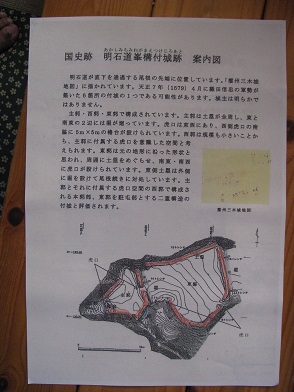 あかしみちみねがまえつけじろあと
国史跡 明石道峯構付城跡 案内図
明石道が直下を通過する尾根の先端に位置しています。「播州三木城
地図」に描かれています。天正7年（1579）4月に織田信忠の軍勢が
築いた6箇所の付城の1つである可能性があります。城主は明らかで
はありません。
主郭・西郭・東郭で構成されています。主郭は土塁が全周し、東と
南東の2辺には堀が廻っています。虎口は東面にあり、
に5m×5mの櫓台が設けられています。西郭は規模も小さいことか
ら、主郭に付属する虎口を意識した空間と考
えられます。東郭は元の地形に沿った形状と
思われ、周囲に土塁をめぐらせ、南東・南西
に虎口が設けられています。東側土塁は外側
に堀を設けて尾根続きに対処しています。主
郭とそれに付属する虎口空間の西郭で構成さ
れる本郭部、東郭を駐屯部とする二重構造の
付城と評価されます。
播州三木城地図
虎口
主郭
堀
東郭
土塁
堀
虎口